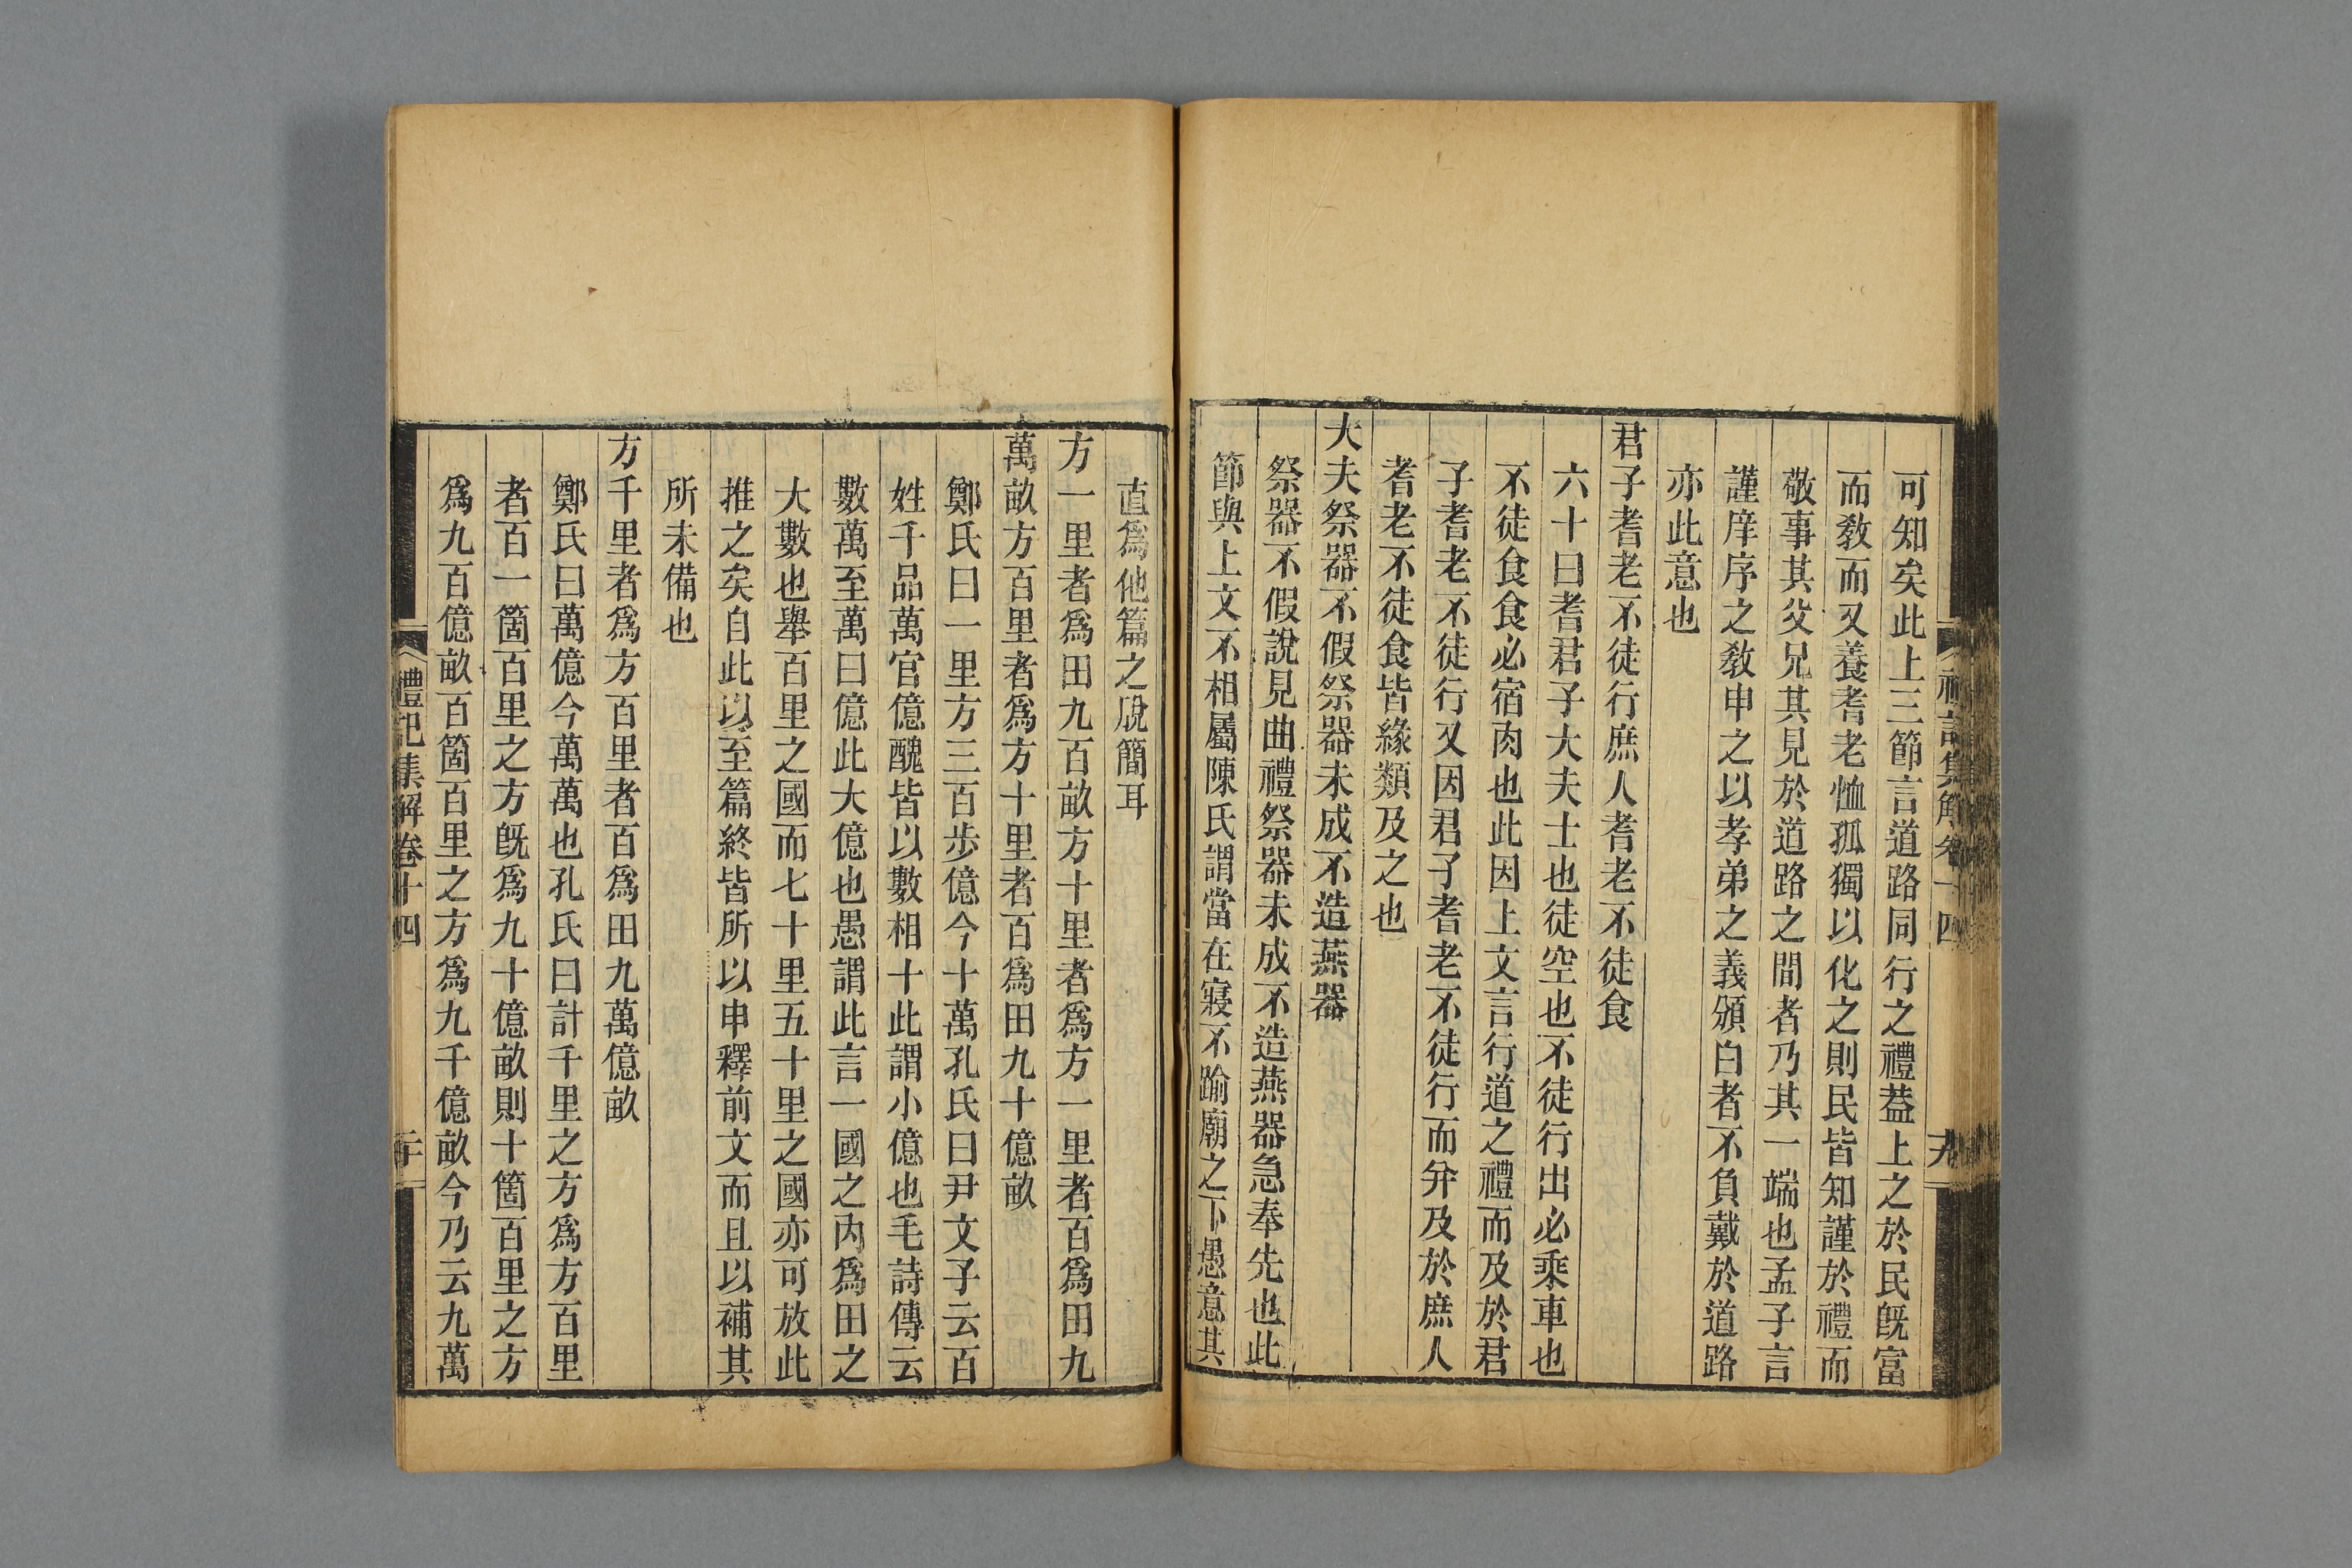 禮記集解卷十四
十九
可知矣此上三節言道路同行之禮葢上之於民旣富
而敎而又養耆老恤孤獨以化之則民皆知謹於禮而
敬事其父兄其見於道路之間者乃其一端也孟子言
謹庠序之敎申之以孝弟之義頒白者不負戴於道路
亦此意也
君子耆老不徒行庶人耆老不徒食
六十曰耆君子大夫士也徒空也不徒行出必乘車也
不徒食食必宿肉也此因上文言行道之禮而及於君
子耆老不徒行又因君子耆老不徒行而幷及於庶人
耆老不徒食皆緣類及之也
大夫祭器不假祭器未成不造燕器
祭器不假說見曲禮祭器未成不造燕器急奉先也此
節與上文不相屬陳氏謂當在寢不踰廟之下愚意其
直爲他篇之脫簡耳
方一里者爲田九百畝方十里者爲方一里者百爲田九
萬畝方百里者爲方十里者百爲田九十億畝
鄭氏曰一里方三百步億今十萬孔氏曰尹文子云百
姓千品萬官億醜皆以數相十此謂小億也毛詩傳云
數萬至萬曰億此大億也愚謂此言一國之內爲田之
大數也舉百里之國而七十里五十里之國亦可放此
推之矣自此以至篇終皆所以申釋前文而且以補其
所未備也
方千里者爲方百里者百爲田九萬億畝
鄭氏曰萬億今萬萬也孔氏曰計千里之方爲方百里
者百一箇百里之方旣爲九十億畝則十箇百里之方
爲九百億畝百箇百里之方爲九千億畝今乃云九萬
禮記集解卷十四
二十